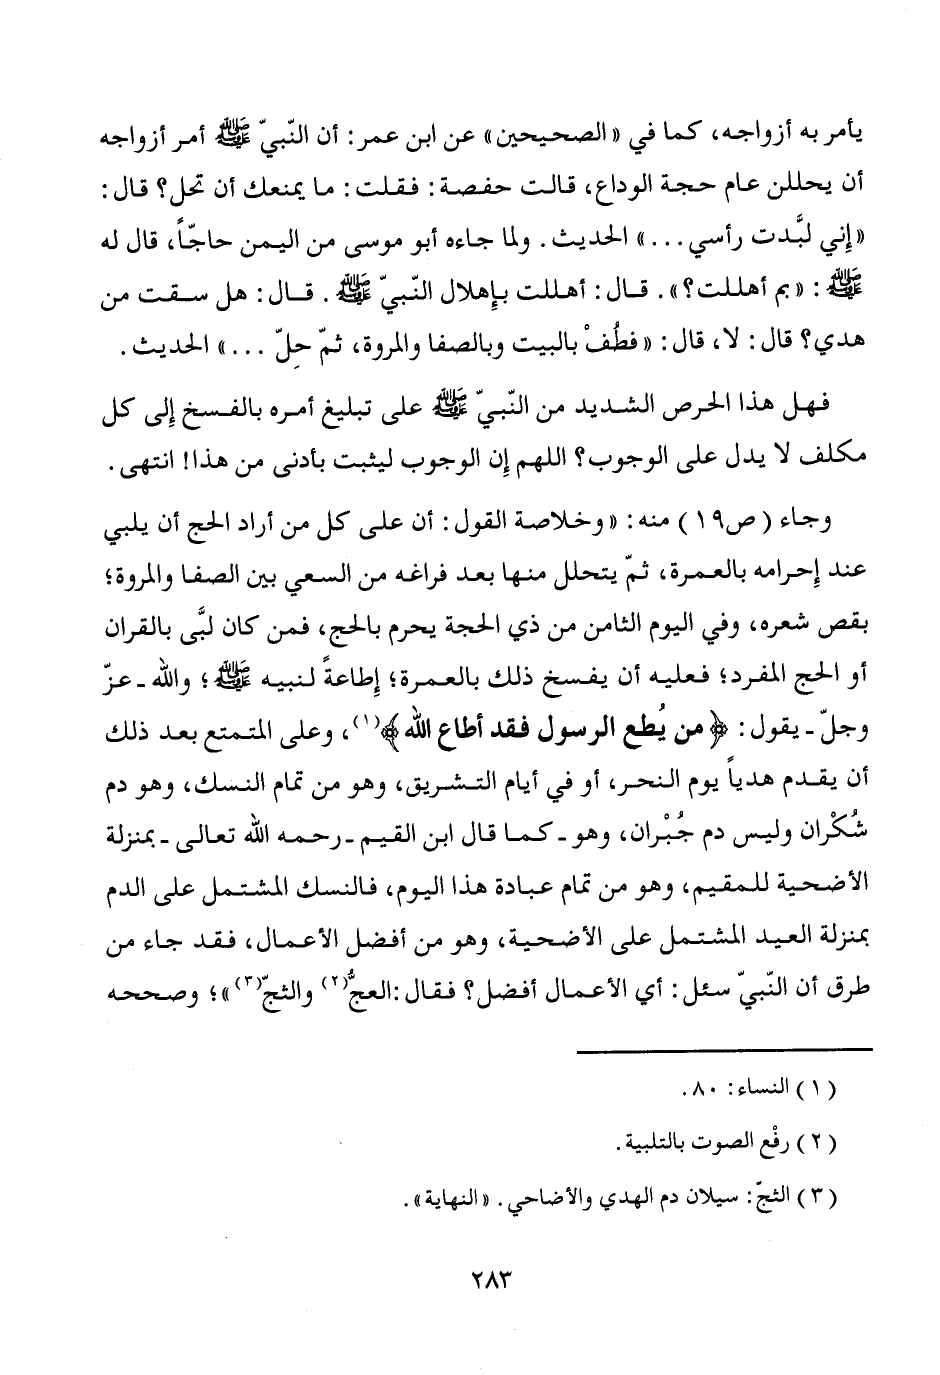 يأمر به أزواجه، كما في «الصحيحين» عن ابن عمر: أن النّبيّ ﷺ أمر أزواجه
أن يحللن عام حجة الوداع، قالت حفصة: فقلت: ما يمنعك أن تحل؟ قال:
«إني لبَّدت رأسي...» الحديث. ولما جاءه أبو موسى من اليمن حاجّاً، قال له
ﷺ: «بم أهللت؟». قال: أهللت بإهلال النّبيّ ﷺ. قال: هل سقت من
هدي؟ قال: لا، قال: «فطُفْ بالبيت وبالصفا والمروة، ثمّ حِلّ ...» الحديث.
فهل هذا الحرص الشديد من النّبيّ ﷺ على تبليغ أمره بالفسخ إلى كل
مكلف لا يدل على الوجوب؟ اللهم إن الوجوب ليثبت بأدنى من هذا! انتهى.
وجاء (ص١٩) منه: «وخلاصة القول: أن على كل من أراد الحج أن يلبي
عند إحرامه بالعمرة، ثمّ يتحلل منها بعد فراغه من السعي بين الصفا والمروة؛
بقص شعره، وفي اليوم الثامن من ذي الحجة يحرم بالحج، فمن كان لبَّى بالقران
أو الحج المفرد؛ فعليه أن يفسخ ذلك بالعمرة؛ إطاعةً لنبيه ﷺ؛ والله ـ عزّ
وجلّ ـ يقول: ﴿من يُطع الرسول فقد أطاع الله﴾(١)، وعلى المتمتع بعد ذلك
أن يقدم هدياً يوم النحر، أو في أيام التشريق، وهو من تمام النسك، وهو دم
شُكْران وليس دم جُبْران، وهو ـ كما قال ابن القيم ـ رحمه الله تعالى ـ بمنزلة
الأضحية للمقيم، وهو من تمام عبادة هذا اليوم، فالنسك المشتمل على الدم
بمنزلة العيد المشتمل على الأضحية، وهو من أفضل الأعمال، فقد جاء من
طرق أن النّبيّ سئل: أي الأعمال أفضل؟ فقال: العجُّ(٢) والثجّ(٣)»؛ وصححه
(١) النساء: ٨٠.
(٢) رفْع الصوت بالتلبية.
(٣) الثجّ: سيلان دم الهدي والأضاحي. «النهاية».
٢٨٣